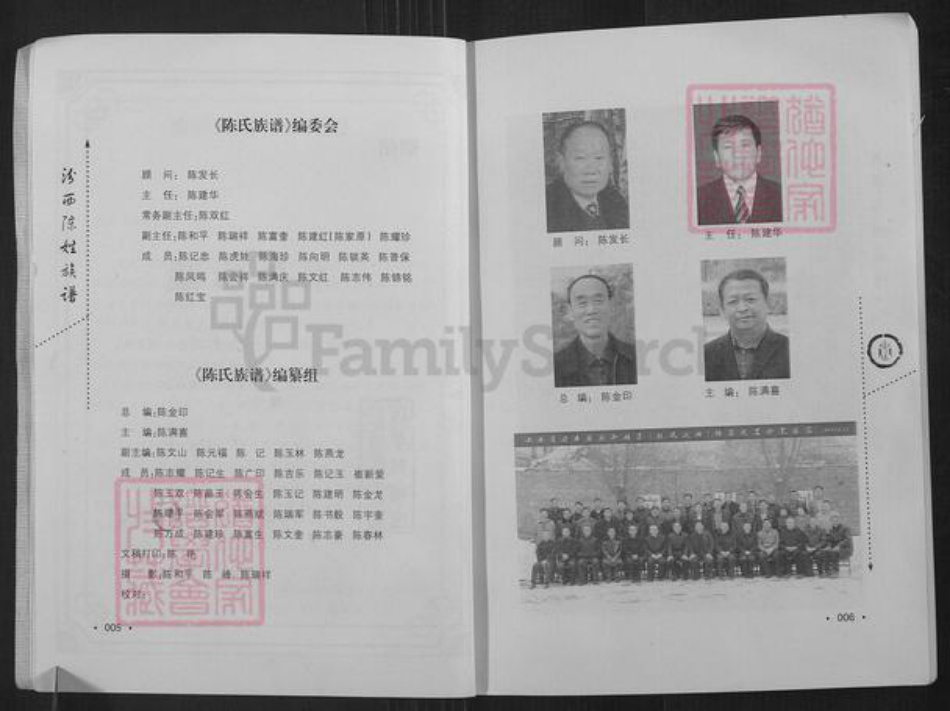 汾西陈姓族谱
《陈氏族谱》编委会
顾 问：陈发长
主 任：陈建华
常务副主任：陈双红
副主任：陈和平 陈瑞祥 陈富奎 陈建红（陈家原） 陈耀珍
成 员：陈记忠 陈虎娃 陈海珍 陈向明 陈毓英 陈普保
陈凤鸣 陈会祥 陈满庆 陈文红 陈志伟 陈锦铭
陈红宝
《陈氏族谱》编纂组
总 编：陈金印
主 编：陈满喜
副主编：陈文山 陈元福 陈 记 陈玉林 陈燕龙
成 员：陈志耀 陈记生 陈广印 陈吉乐 陈记玉 崔新爱
陈玉双 陈晶玉 陈会生 陈玉记 陈建明 陈金龙
陈建平 陈会军 陈燕斌 陈瑞军 陈书毅 陈宇奎
陈万成 陈建珍 陈富生 陈文奎 陈志豪 陈春林
文稿打印：陈 艳
摄 影：陈和平 陈 峰 陈瑞祥
校对：
· 005 ·
顾 问：陈发长
主 任：陈建华
总 编：陈金印
主 编：陈满喜
· 006 ·
FamilySearch